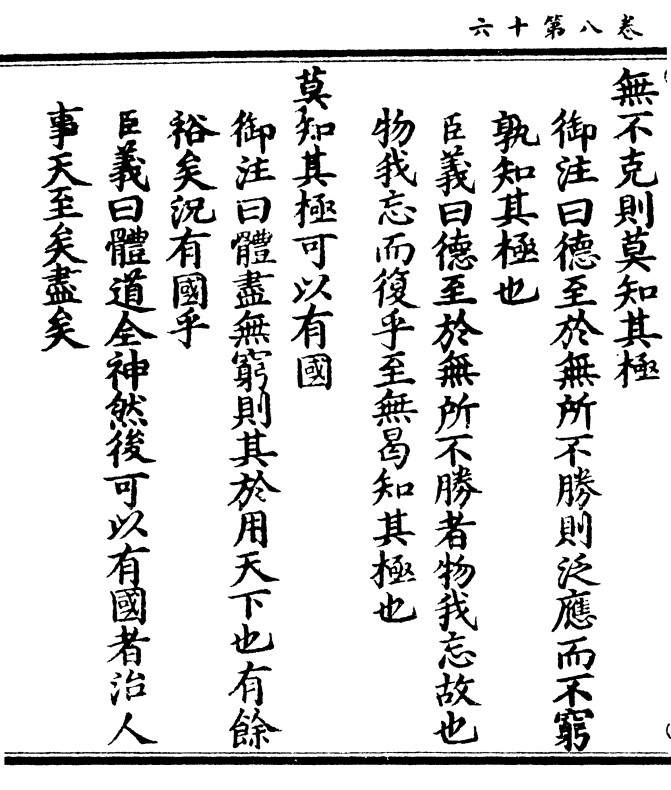 卷八第十六
無不克則莫知其極
御注曰德至於無所不勝則泛應而不窮
孰知其極也
臣義曰德至於無所不勝者物我忘故也
物我忘而復乎至無曷知其極也
莫知其極可以有國
御注曰體盡無窮則其於用天下也有餘
裕矣況有國乎
臣義曰體道全神然後可以有國者治人
事天至矣盡矣